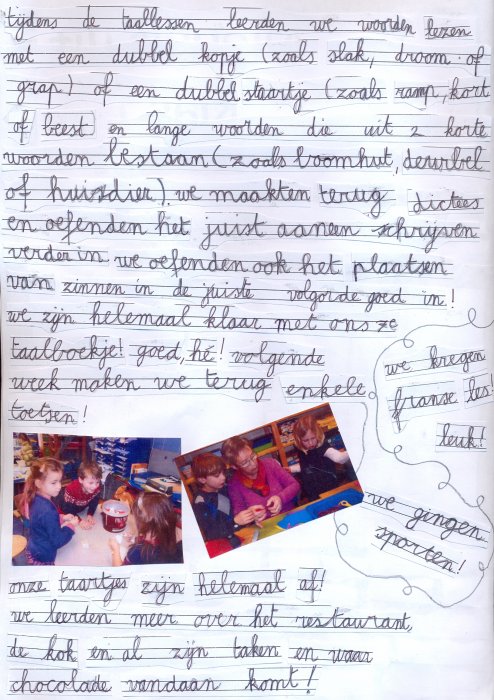 tijdens de taallessen leerden we woorden lezen
met een dubbel kopje (zoals slak, droom of
grap) of een dubbel staartje (zoals ramp, kort
of beest en lange woorden die uit 2 korte
woorden bestaan (zoals boomhut, deurbel
of huisdier). we maakten terug dictees
en oefenden het juist aaneen schrijven
verder in. we oefenden ook het plaatsen
van zinnen in de juiste volgorde goed in!
we zijn helemaal klaar met ons ze
taalboekje! goed, hé! volgende
week maken we terug enkele
toetsen!
we kregen
franse les!
leuk!
we gingen
sporten!
onze taartjes zijn helemaal af!
we leerden meer over het restaurant,
de kok en al zijn taken en waar
chocolade vandaan komt!